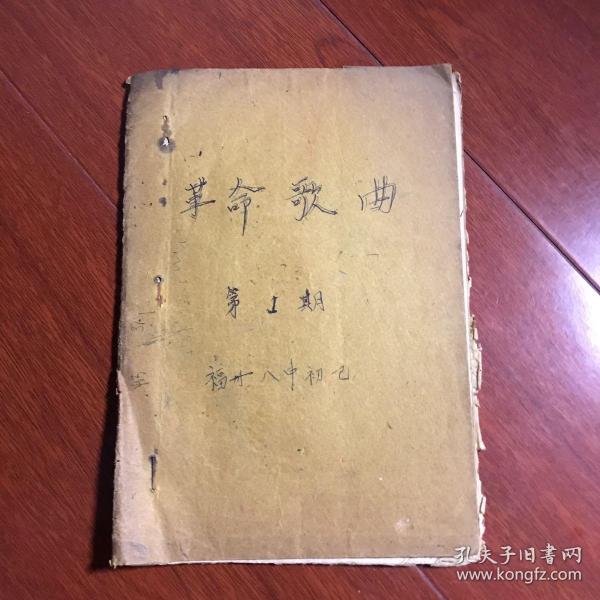 革命歌曲
第1期
福卅八中初
孔夫子旧書网
www.kongfz.com